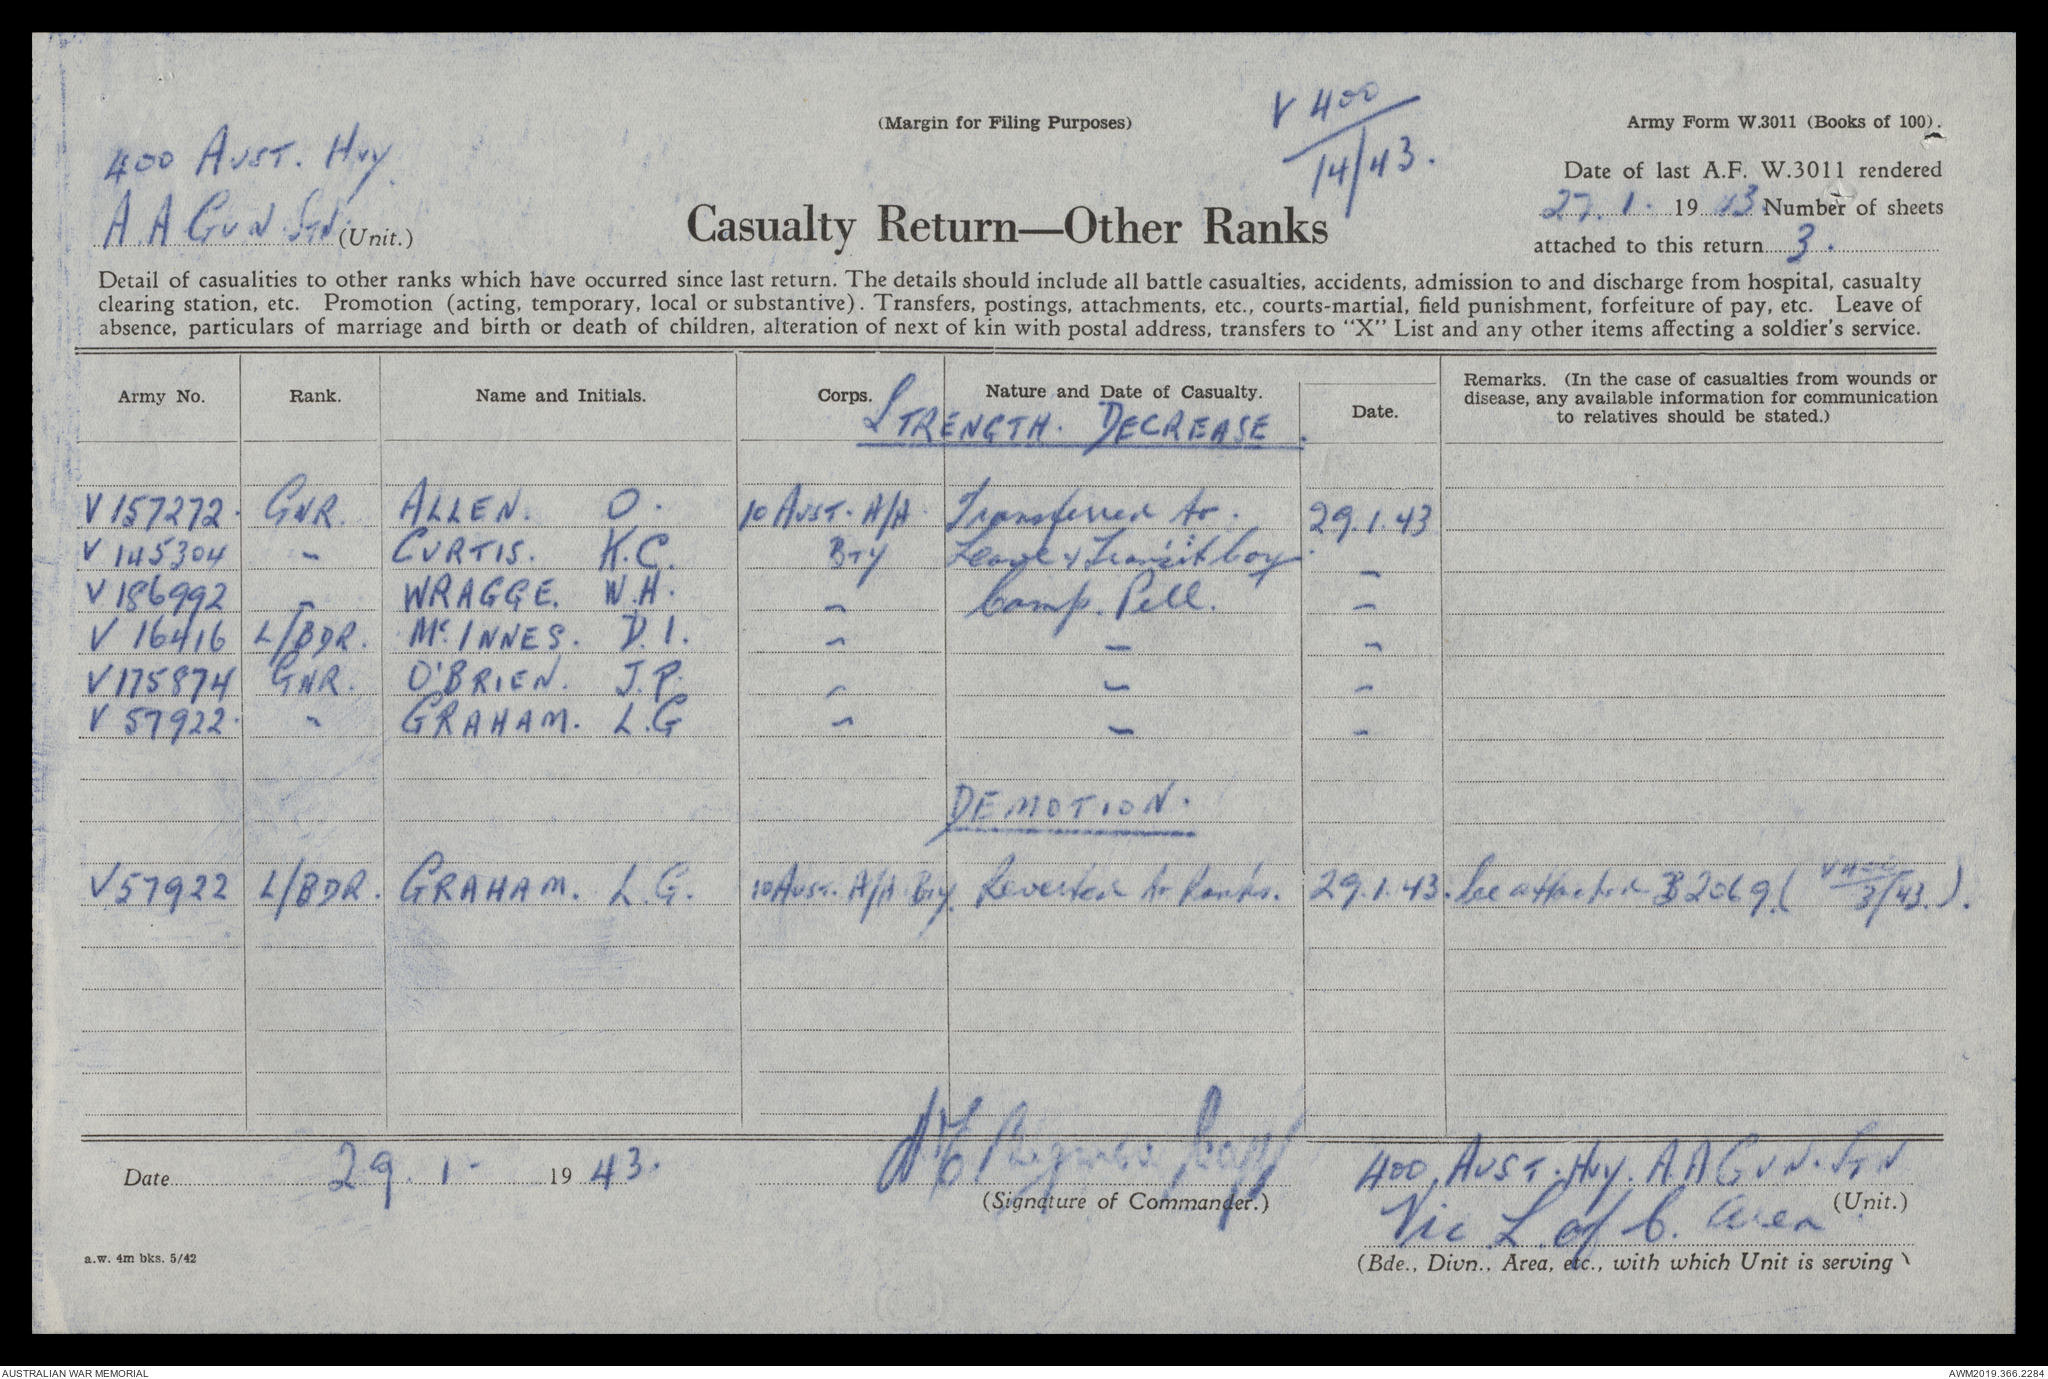 (Margin for Filing Purposes)
V 400
14/43.
Army Form W.3011 (Books of 100).
400 AUST. HVY
A.A GUN. STN. (Unit.)
Casualty Return—Other Ranks
Date of last A.F. W.3011 rendered
27. 1. 19 43. Number of sheets
attached to this return 3.
Detail of casualities to other ranks which have occurred since last return. The details should include all battle casualties, accidents, admission to and discharge from hospital, casualty
clearing station, etc. Promotion (acting, temporary, local or substantive). Transfers, postings, attachments, etc., courts-martial, field punishment, forfeiture of pay, etc. Leave of
absence, particulars of marriage and birth or death of children, alteration of next of kin with postal address, transfers to "X" List and any other items affecting a soldier's service.
Army No. Rank. Name and Initials. Corps. Nature and Date of Casualty. Date. Remarks. (In the case of casualties from wounds or
disease, any available information for communication
to relatives should be stated.)
STRENGTH. DECREASE.
V157272. GNR. ALLEN. O. 10 AUST. A/A Transferred to. 29.1.43
V145304 " CURTIS. K.C. BTY Leave & Transit Coy "
V186992 " WRAGGE. W.H. " Camp. Pell. "
V 16416 L/BDR. McINNES. D.I. " " "
V175874 GNR. O'BRIEN. J.P. " " "
V 57922. " GRAHAM. L.G " " "
DEMOTION.
V57922 L/BDR. GRAHAM. L.G. 10 AUST. A/A BTY. Reverted to Ranks. 29.1.43. See attached B2069. (V400 3/43.).
Date 29. 1. 19 43.
(Signature of Commander.)
400 AUST. HVY. A.A GUN. STN
(Unit.)
Vic L of C. Area.
(Bde., Divn., Area, etc., with which Unit is serving)
a.w. 4m bks. 5/42
AUSTRALIAN WAR MEMORIAL
AWM2019.366.2284